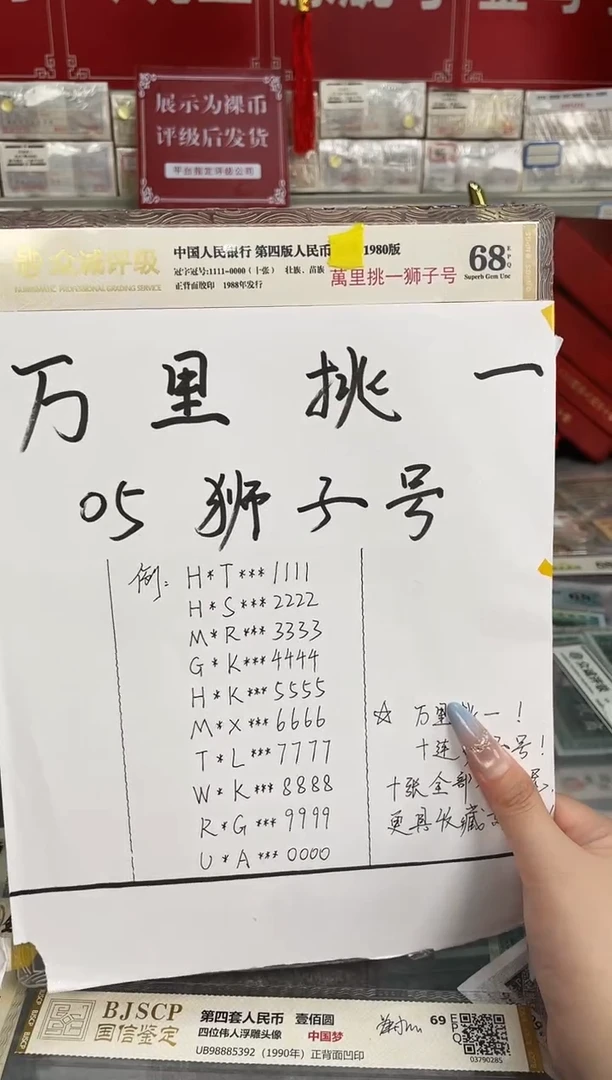 展示为裸币
评级后发货
平台指定评级公司
众诚评级
中国人民银行 第四版人民币 1980版
冠字冠号:1111-0000(十张) 壮族、苗族
正背面胶印 1988年发行
萬里挑一狮子号
68 EPQ
Superb Gem Unc
万里挑一
05狮子号
例: H*T***1111
H*S***2222
M*R***3333
G*K***4444
H*K***5555
M*X***6666
T*L***7777
W*K***8888
R*G***9999
U*A***0000
☆ 万里挑一!
十连 号!
十张全部
更具收藏
BJSCP
国信鉴定
第四套人民币 壹佰圆
四位伟人浮雕头像 中国梦
UB98885392(1990年)正背面凹印
69 EPQ
03790285